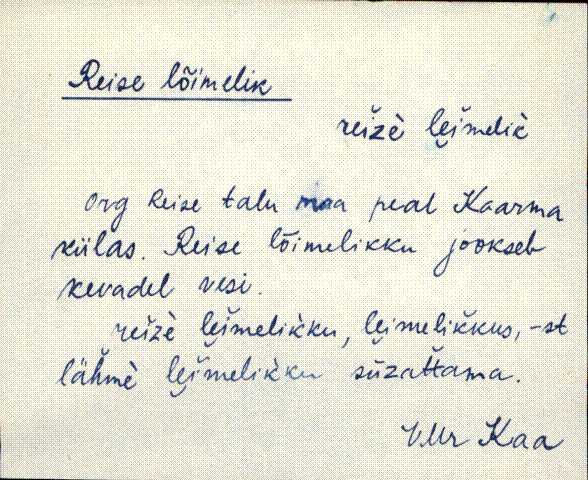 Reise lõimelik
reĭžè lęĭmelik̀
org Reise talu maa peal Kaarma
külas. Reise lõimelikku jookseb
kevadel vesi.
reĭžè lęĭmelik̀ku, lęimelikkus, -st
lähmè lęĭmelik̀ku sūzat̆tama.
VMr Kaa